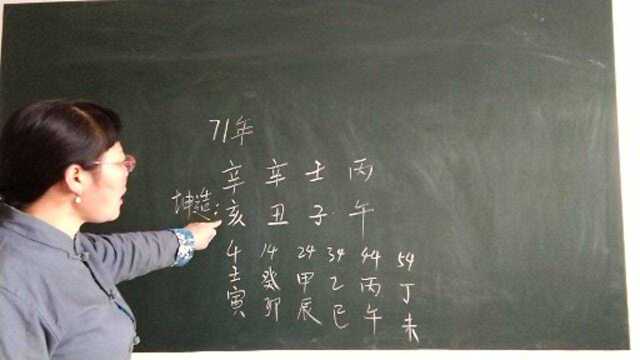 71年
辛 辛 壬 丙
坤造: 亥 丑 子 午
4 14 24 34 44 54
壬 癸 甲 乙 丙 丁
寅 卯 辰 巳 午 未